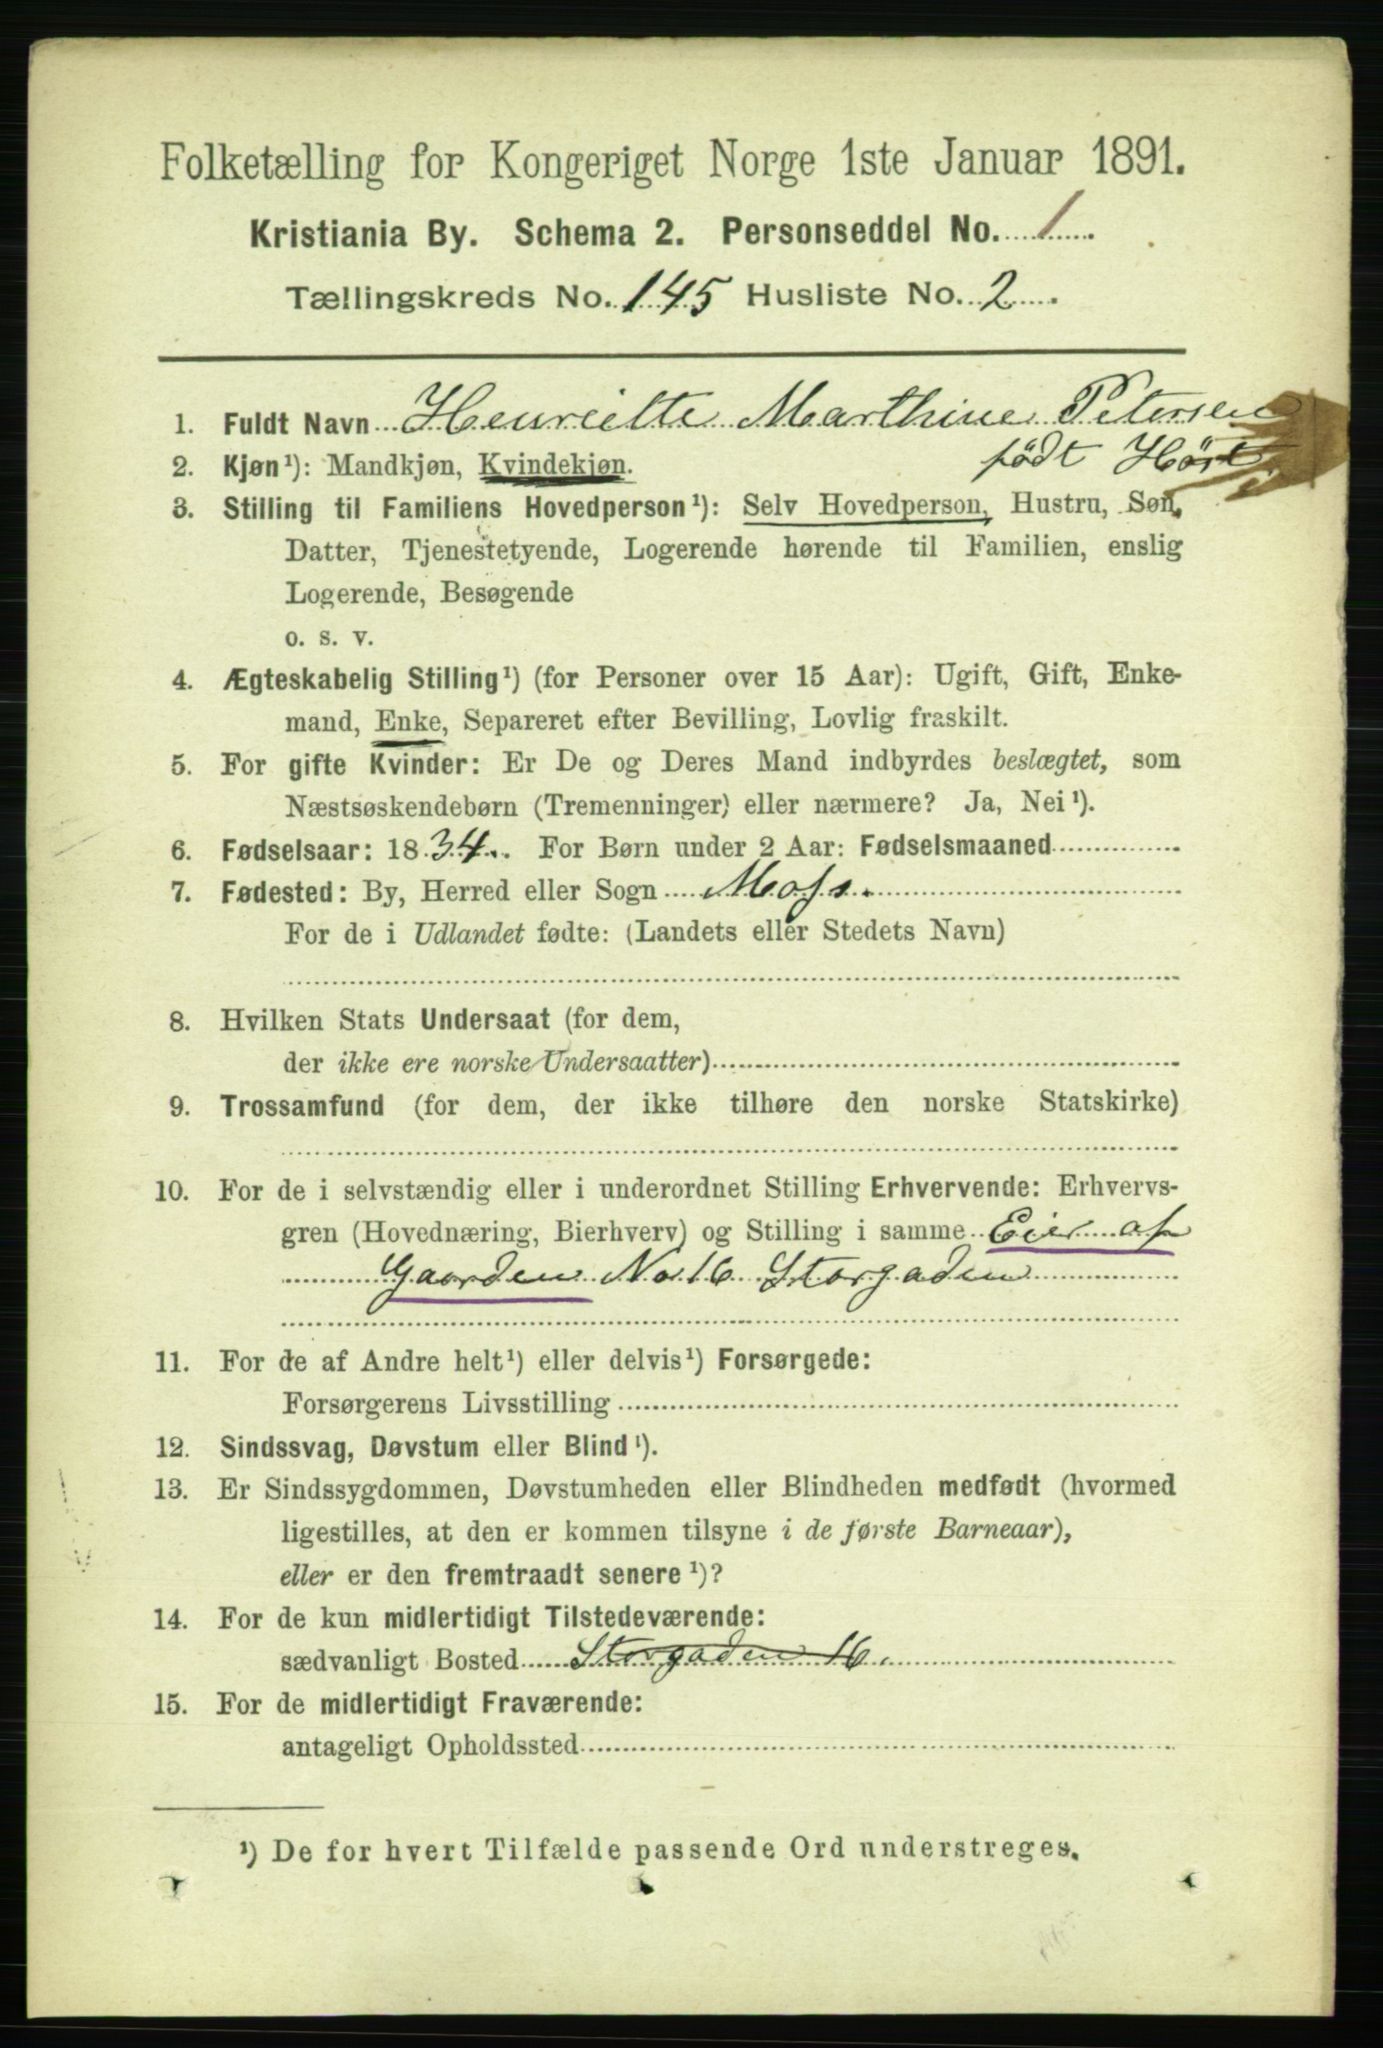 Folketælling for Kongeriget Norge 1ste Januar 1891.
Kristiania By. Schema 2. Personseddel No. 1.
Tællingskreds No. 145 Husliste No. 2.
1. Fuldt Navn Henriette Marthine Petersen
født Höst
2. Kjøn¹): Mandkjøn, Kvindekjøn.
3. Stilling til Familiens Hovedperson¹): Selv Hovedperson, Hustru, Søn,
Datter, Tjenestetyende, Logerende hørende til Familien, enslig
Logerende, Besøgende
o. s. v.
4. Ægteskabelig Stilling¹) (for Personer over 15 Aar): Ugift, Gift, Enke-
mand, Enke, Separeret efter Bevilling, Lovlig fraskilt.
5. For gifte Kvinder: Er De og Deres Mand indbyrdes beslægtet, som
Næstsøskendebørn (Tremenninger) eller nærmere? Ja, Nei¹).
6. Fødselsaar: 1834. For Børn under 2 Aar: Fødselsmaaned
7. Fødested: By, Herred eller Sogn Moss.
For de i Udlandet fødte: (Landets eller Stedets Navn)
8. Hvilken Stats Undersaat (for dem,
der ikke ere norske Undersaatter)
9. Trossamfund (for dem, der ikke tilhøre den norske Statskirke)
10. For de i selvstændig eller i underordnet Stilling Erhvervende: Erhvervs-
gren (Hovednæring, Bierhverv) og Stilling i samme Eier af
Gaarden No 16 Storgaden
11. For de af Andre helt¹) eller delvis¹) Forsørgede:
Forsørgerens Livsstilling
12. Sindssvag, Døvstum eller Blind¹).
13. Er Sindssygdommen, Døvstumheden eller Blindheden medfødt (hvormed
ligestilles, at den er kommen tilsyne i de første Barneaar),
eller er den fremtraadt senere¹)?
14. For de kun midlertidigt Tilstedeværende:
sædvanligt Bosted Storgaden 16.
15. For de midlertidigt Fraværende:
antageligt Opholdssted
¹) De for hvert Tilfælde passende Ord understreges.